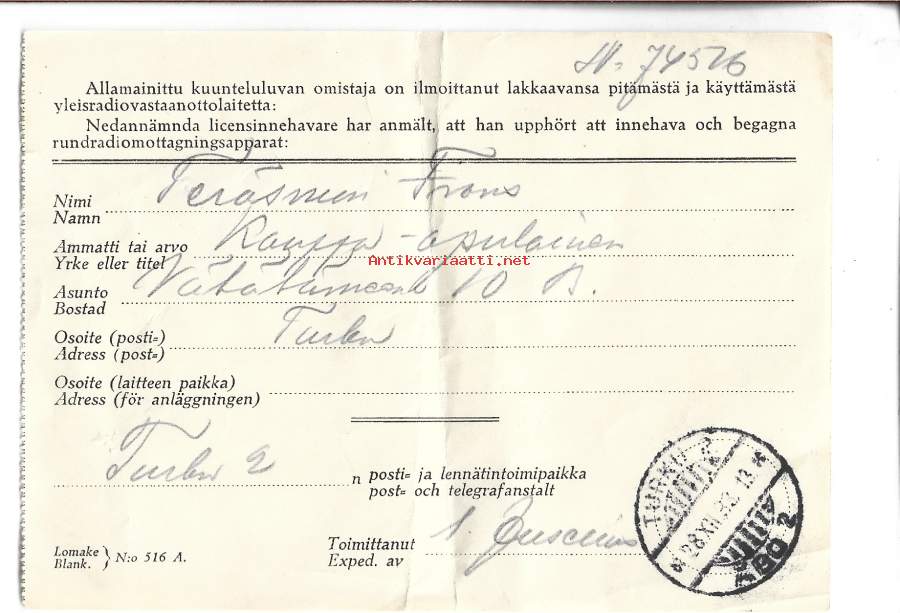 N: 74516
Allamainittu kuunteluluvan omistaja on ilmoittanut lakkaavansa pitämästä ja käyttämästä
yleisradiovastaanottolaitetta:
Nedannämnda licensinnehavare har anmält, att han upphört att innehava och begagna
rundradiomottagningsapparat:
Nimi
Namn
Frans
Ammatti tai arvo
Yrke eller titel
Kauppa-apulainen
Antikvariaatti.net
Asunto
Bostad
10 B.
Osoite (posti=)
Adress (post=)
Turku
Osoite (laitteen paikka)
Adress (för anläggningen)
Turku 2
n posti= ja lennätintoimipaikka
post= och telegrafanstalt
Toimittanut
Exped. av
Lomake
Blank. } N:o 516 A.
TURKU 2
28.XII.33.13
ÅBO 2